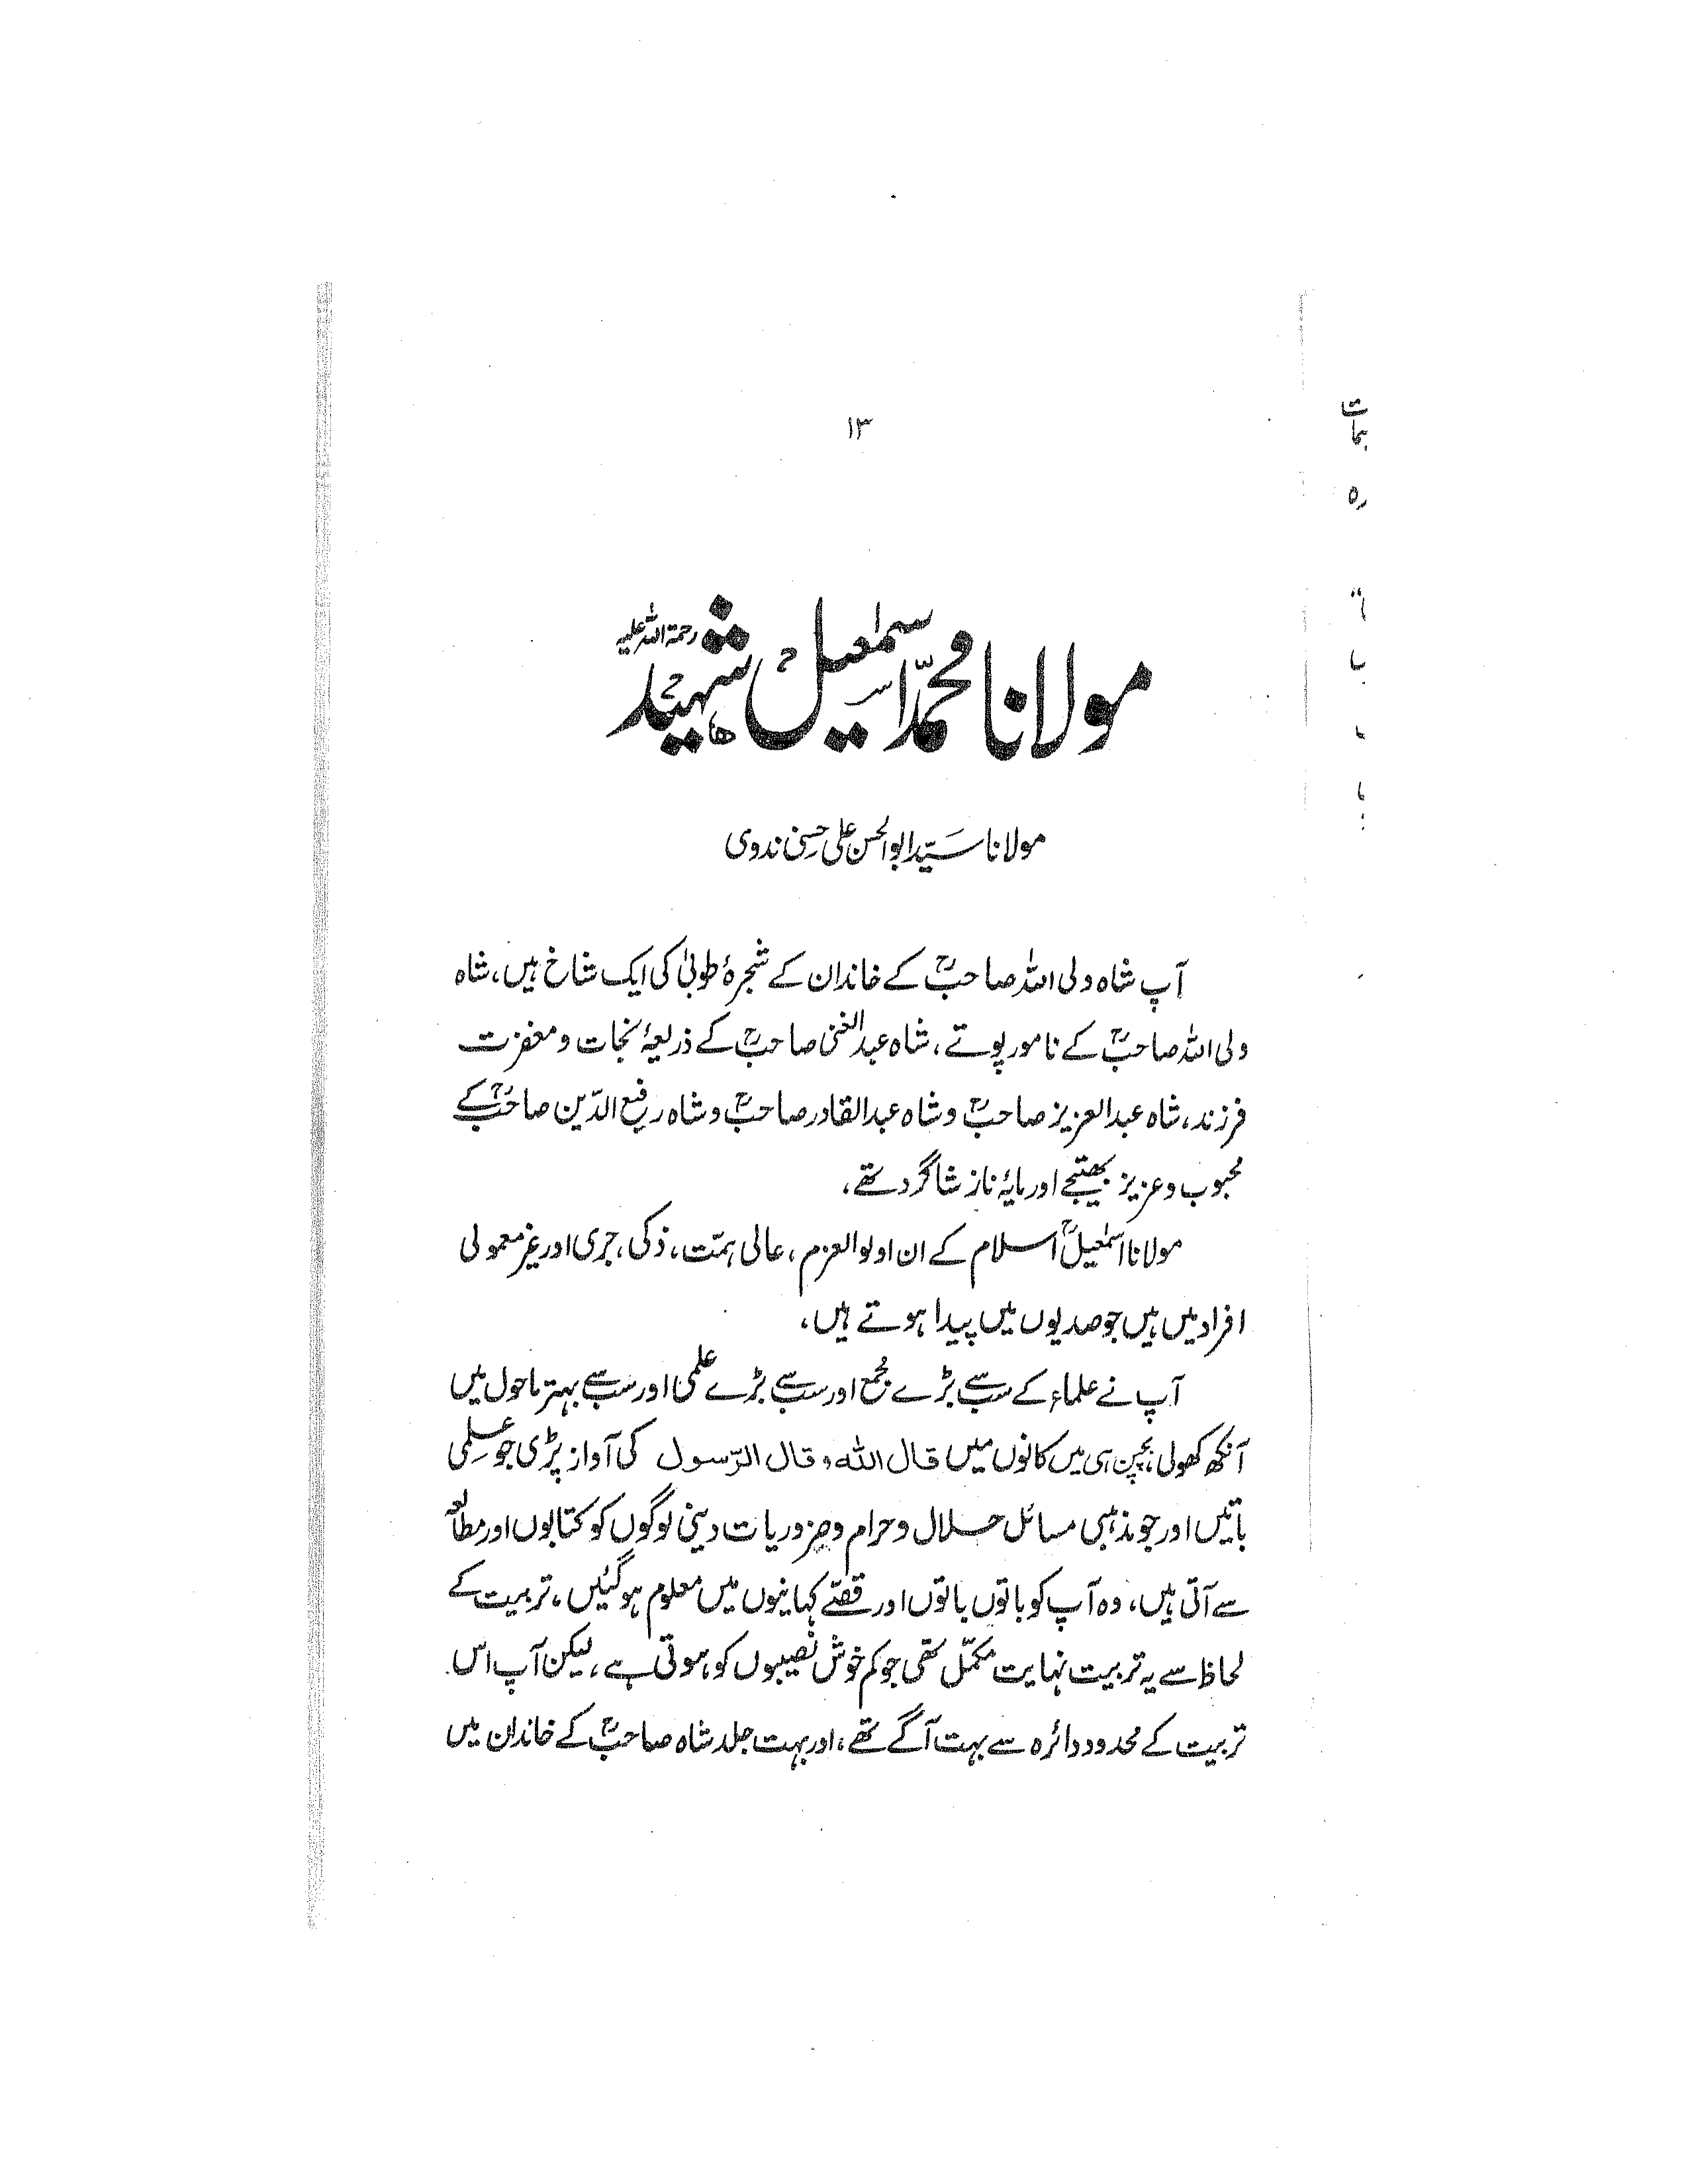 ۱۳
مولانا محمد اسمٰعیل شہید رحمۃ اللہ علیہ
مولانا سیّد ابوالحسن علی حسنی ندوی
آپ شاہ ولی اللہ صاحبؒ کے خاندان کے شجرۂ طوبیٰ کی ایک شاخ ہیں، شاہ
ولی اللہ صاحبؒ کے نامور پوتے، شاہ عبدالغنی صاحبؒ کے ذریعۂ نجات و مغفرت
فرزند، شاہ عبدالعزیز صاحبؒ و شاہ عبدالقادر صاحبؒ و شاہ رفیع الدّین صاحبؒ کے
محبوب و عزیز بھتیجے اور مایۂ ناز شاگرد تھے،
مولانا اسمٰعیلؒ اسلام کے ان اولوالعزم، عالی ہمّت، ذکی، جری اور غیر معمولی
افراد میں ہیں جو صدیوں میں پیدا ہوتے ہیں،
آپ نے علماء کے سب سے بڑے مجمع اور سب سے بڑے علمی اور سب سے بہتر ماحول میں
آنکھ کھولی، بچپن ہی میں کانوں میں قال اللہ و قال الرّسول کی آواز پڑی جو عِلمی
باتیں اور جو مذہبی مسائل حلال و حرام و ضروریات دینی لوگوں کو کتابوں اور مطالعہ
سے آتی ہیں، وہ آپ کو باتوں باتوں اور قصّے کہانیوں میں معلوم ہو گئیں، تربیت کے
لحاظ سے یہ تربیت نہایت مکمّل تھی جو کم خوش نصیبوں کو ہوتی ہے، لیکن آپ اس
تربیت کے محدود دائرہ سے بہت آگے تھے، اور بہت جلد شاہ صاحبؒ کے خاندان میں